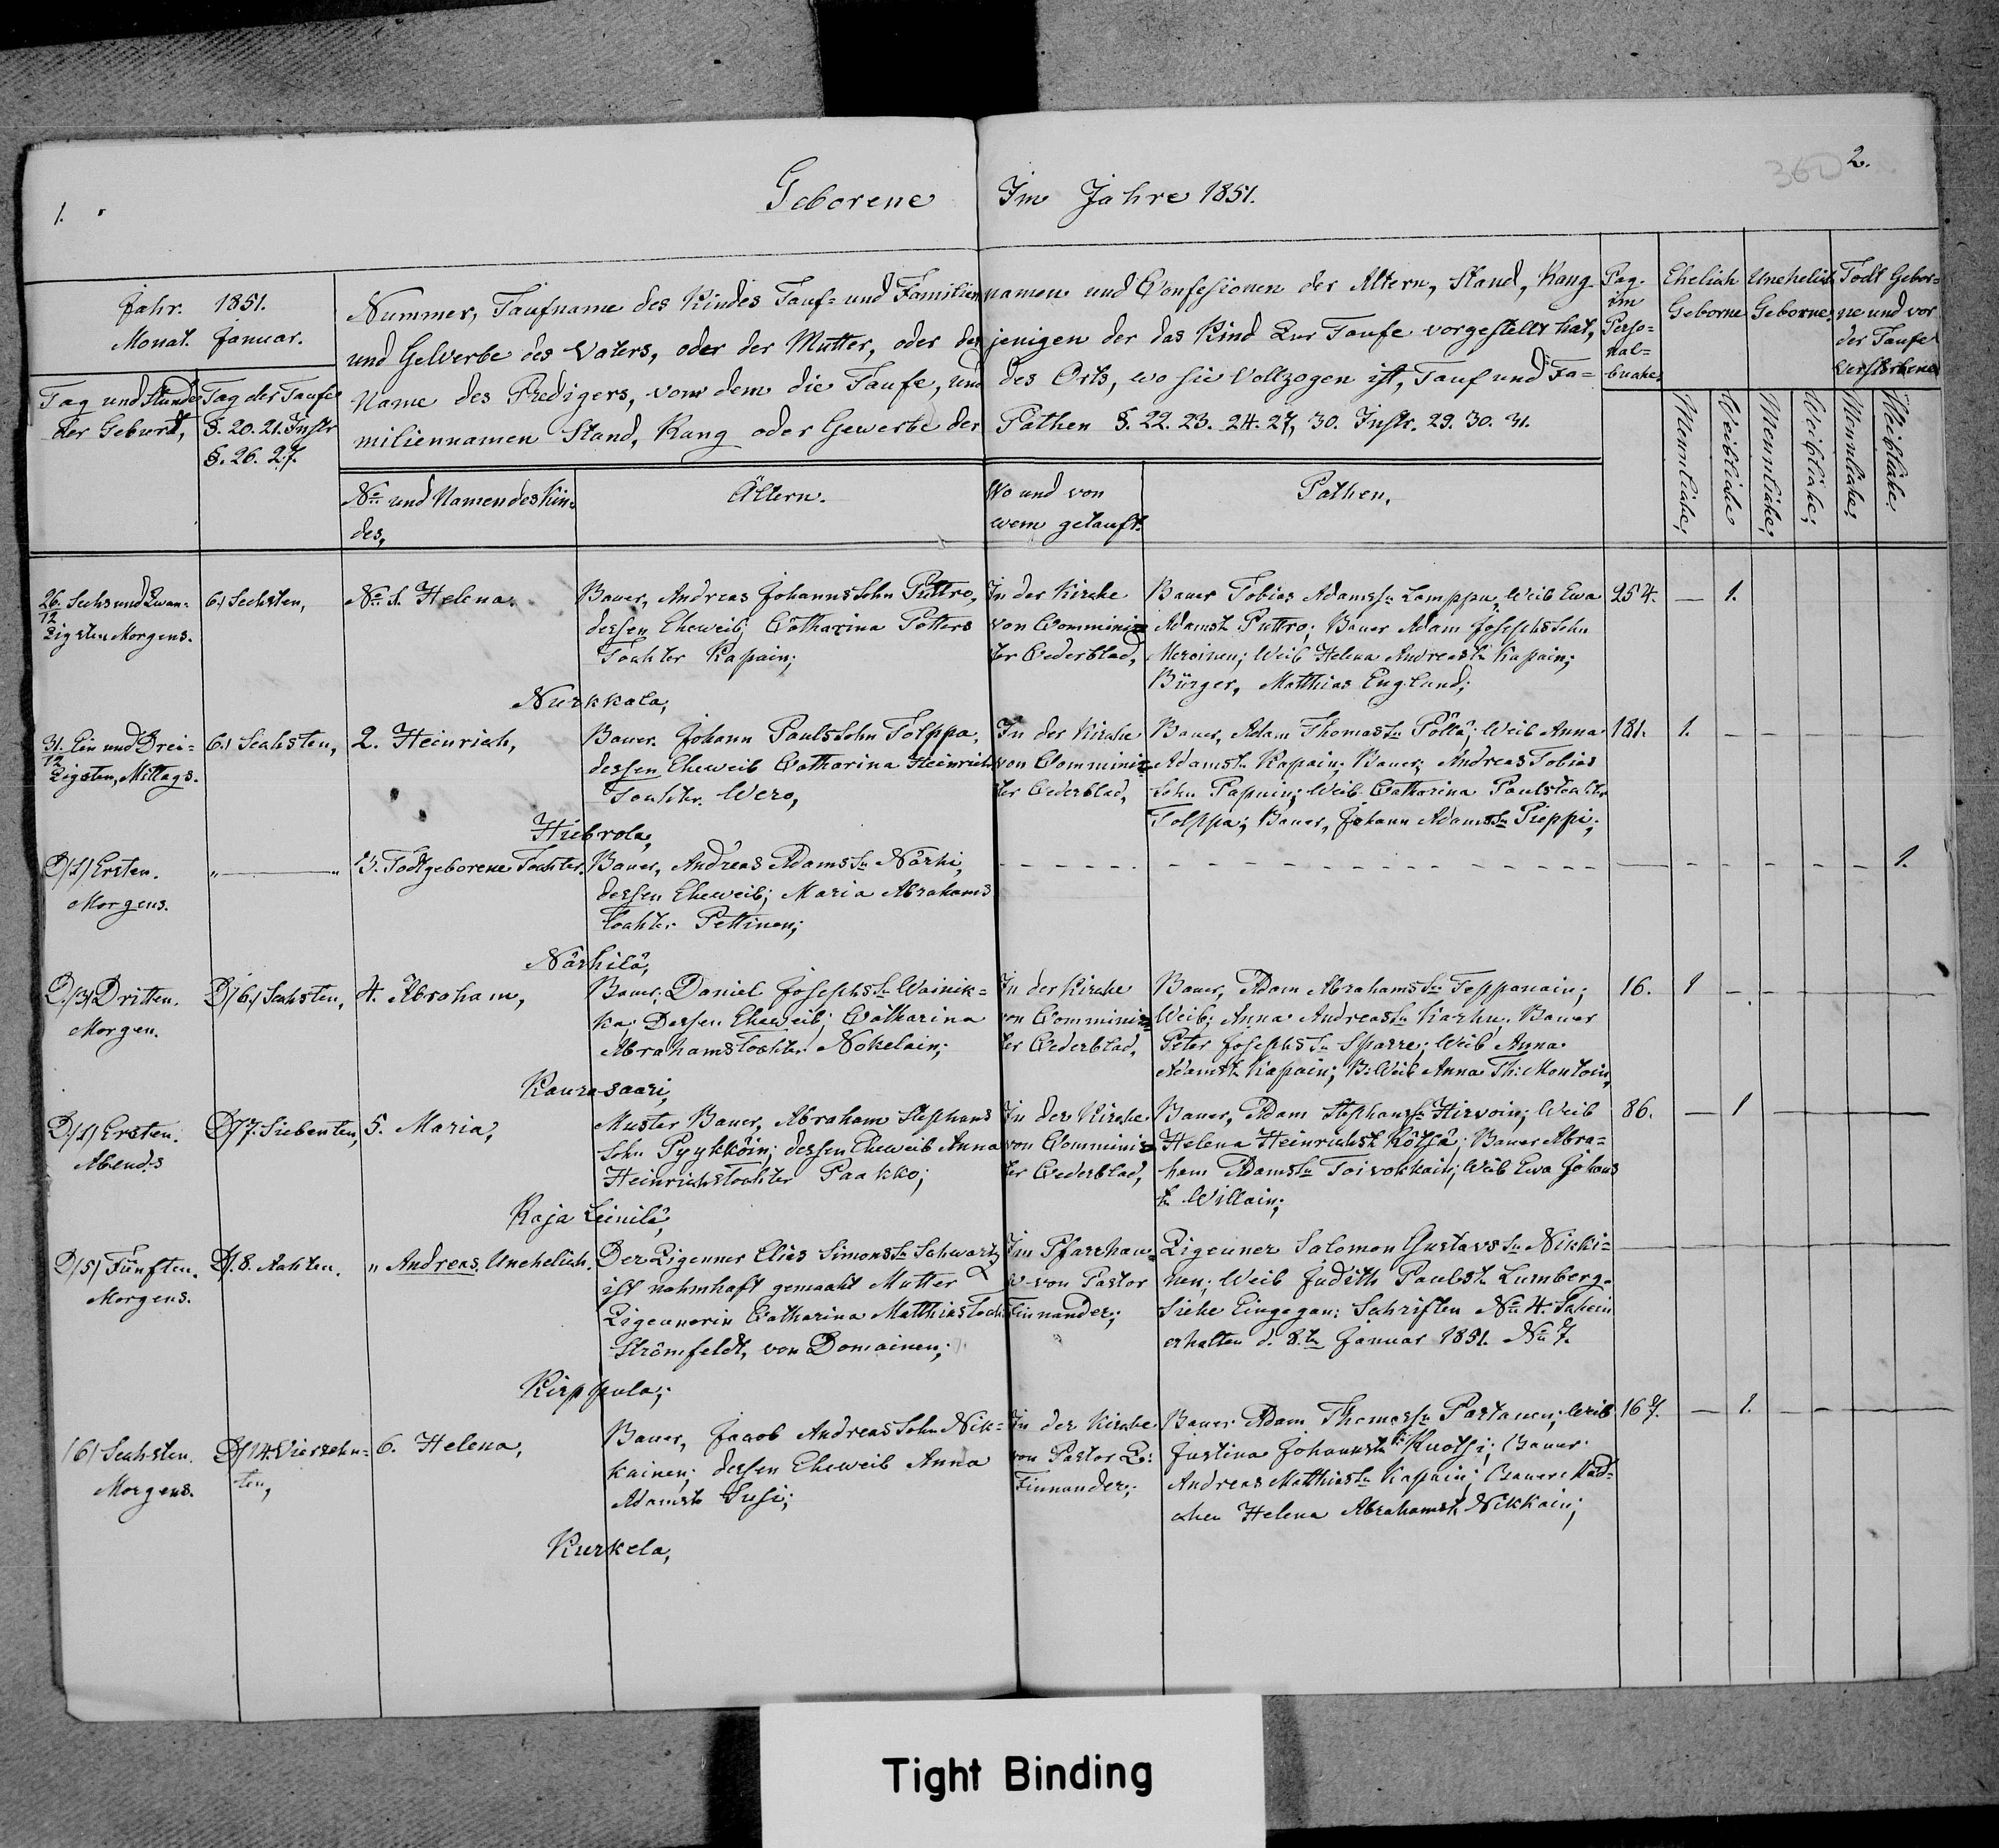 1.
2.
360
Geborene Im Jahre 1851.
Jahr. 1851.
Monat. Januar.
Tag und Stunde der Geburt,
Tag der Taufe
§. 20. 21. Instr
§. 26. 27.
Nummer, Taufname des Kindes Tauf= und Familien namen und Confesionen der Altern, Stand, Rang
und Gewerbe des Vaters, oder der Mutter, oder des jenigen der das Kind zur Taufe vorgestellt hat,
Name des Predigers, vom dem die Taufe, und des Orts, wo sie vollzogen ist, Tauf und Fa=
miliennamen Stand, Rang oder Gewerbe der Pathen §. 22. 23. 24. 27, 30. Instr. 29. 30. 31.
Pag.
im
Perso=
nal=
buche,
Ehelich
Geborne
Unehelich
Geborne,
Todt Gebor=
ne und vor
der Taufe
Verstorbene
Mennliche,
Weibliche
Mennliche,
Weibliche,
Mennliche,
Weibliche.
No und Namen des Kin=
des,
Ältern.
Wo und von
wem getauft.
Pathen,
26. Sechs und Zwan=
12
zigsten Morgens.
6.) Sechsten,
No 1. Helena.
Bauer, Andreas Johanns Sohn Puttro,
dessen Eheweib; Catharina Petters
Tochter Kapain;
Nurkkala,
In der Kirche
von Comminis
ter Cederblad,
Bauer Tobias Adamssn Lamppu, Weib Ewa
Adamst Puttro; Bauer Adam Josephs Sohn
Meroinen; Weib Helena Andreast Kapain;
Bürger, Matthias England;
254. — 1.
31. Ein und Drei=
12
zigsten, Mittags.
6.) Sechsten,
2. Heinrich,
Bauer. Johann Pauls Sohn Tolppa,
dessen Eheweib Catharina Heinrichs
Tochter. Wero,
Hiebrola,
In der Kirche
von Comminis
ter Cederblad,
Bauer, Adam Thomassn Pöllä; Weib Anna
Adamst. Kapain; Bauer; Andreas Tobias
Sohn Papuin; Weib Catharina Paulstochter
Tolppa; Bauer, Johann Adamssn Pieppi;
181. 1. — — — — —
D/1/ Ersten.
Morgens.
" — "
3. Todtgeborene Tochter.
Bauer, Andreas Adamssn Närhi,
dessen Eheweib; Maria Abrahams
Tochter Pettinen;
Närhilä,
1.
D./3/ Dritten.
Morgen.
D/6./ Sechsten,
4. Abraham,
Bauer; Daniel Josephssn Wainik=
ka; Dessen Eheweib; Catharina
Abrahamstochter Nokelain;
Kaurasaari,
In der Kirche
von Comminis
ter Cederblad,
Bauer, Adam Abrahamssn Teppanain;
Weib; Anna Andreasst Karhu; Bauer
Peter Josephssn Sparre; Weib Anna
Adamst Kapain; B. Weib Anna Th: Montoin,
16. 1 — — — — —
D./1/ Ersten.
Abends
D/7. Siebenten,
5. Maria,
Muster Bauer, Abraham Stephans
Sohn Pyykköin; dessen Eheweib Anna
Heinrichstochter Paakko;
Raja Leinilä,
In der Kirche
von Comminis
ter Cederblad,
Bauer, Adam Stephanssn Hirvoin; Weib
Helena Heinrichst Kötsä; Bauer Abra=
ham Adamssn Toivokkain; Weib Ewa Johans
t. Willain;
86. — 1 — — — —
D/5/ Fünften.
Morgens.
D/.8. Achten.
" Andreas. Unehelich.
Der Zigeuner Elias Simonssn Schwartz
ist nahmhaft gemacht Mutter
Zigeunerin Catharina Matthias Toch
Strömfeldt, von Domainen;
Kirppula;
Im Pfarrhau=
von Pastor
Finnander;
Zigeuner Salomon Gustavssn Nikki=
nen; Weib Judith Paulst. Lumberg.
Siehe Eingegan: Schriften No 4. Schein
erhalten d. 8.ten Januar 1851. No 7.
/6/ Sechsten.
Morgens.
D/14. Vierzehn=
ten,
6. Helena,
Bauer, Jacob Andreas Sohn Nik=
kainen; dessen Eheweib Anna
Adamst Susi;
Kurkela,
In der Kirche
von Pastor
Finnander;
Bauer Adam Thomassn Partanen; Weib
Justina Johannst Kuotsi; Bauer
Andreas Matthiassn Kapain; Bauer Mäd=
chen Helena Abrahamst. Nikkain;
167. — 1. — — — —
Tight Binding